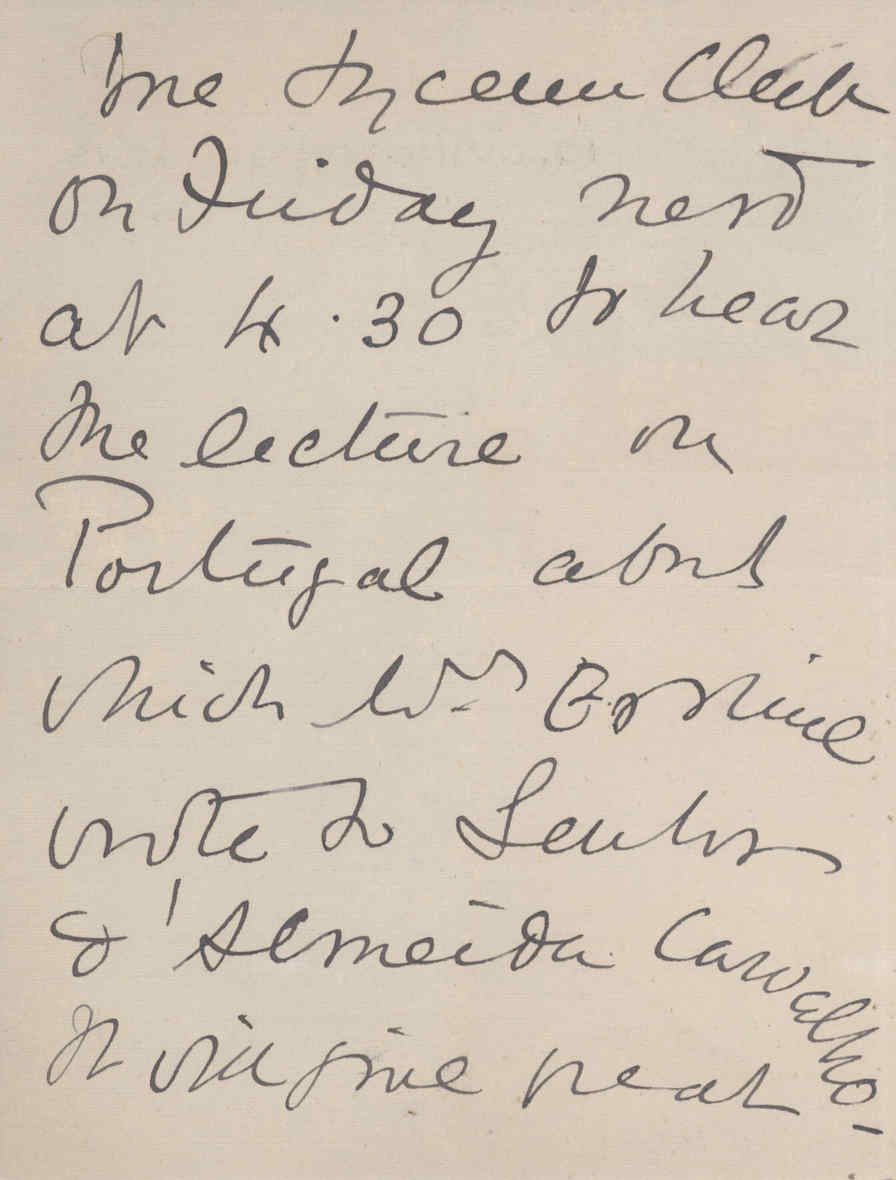 the Lyceum Club
on Friday next
at 4.30 to hear
the lecture on
Portugal about
which Mrs Erskine
wrote to Senhor
d'Almeida Carvalho.
It will give great